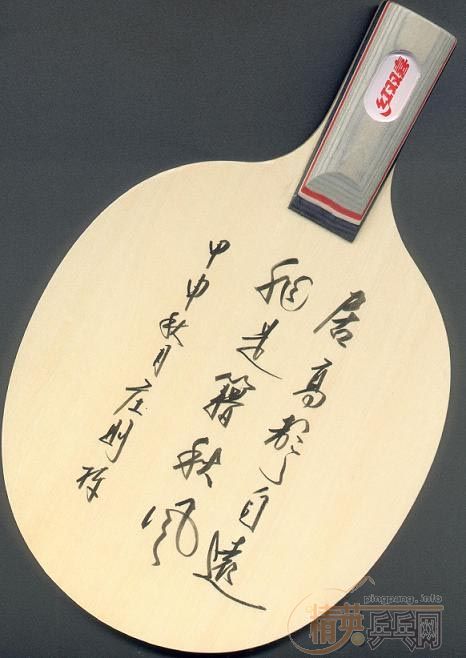 居高聲自遠
非是籍秋风
甲申秋月庄则栋
pingpang.info
精英乒乓网